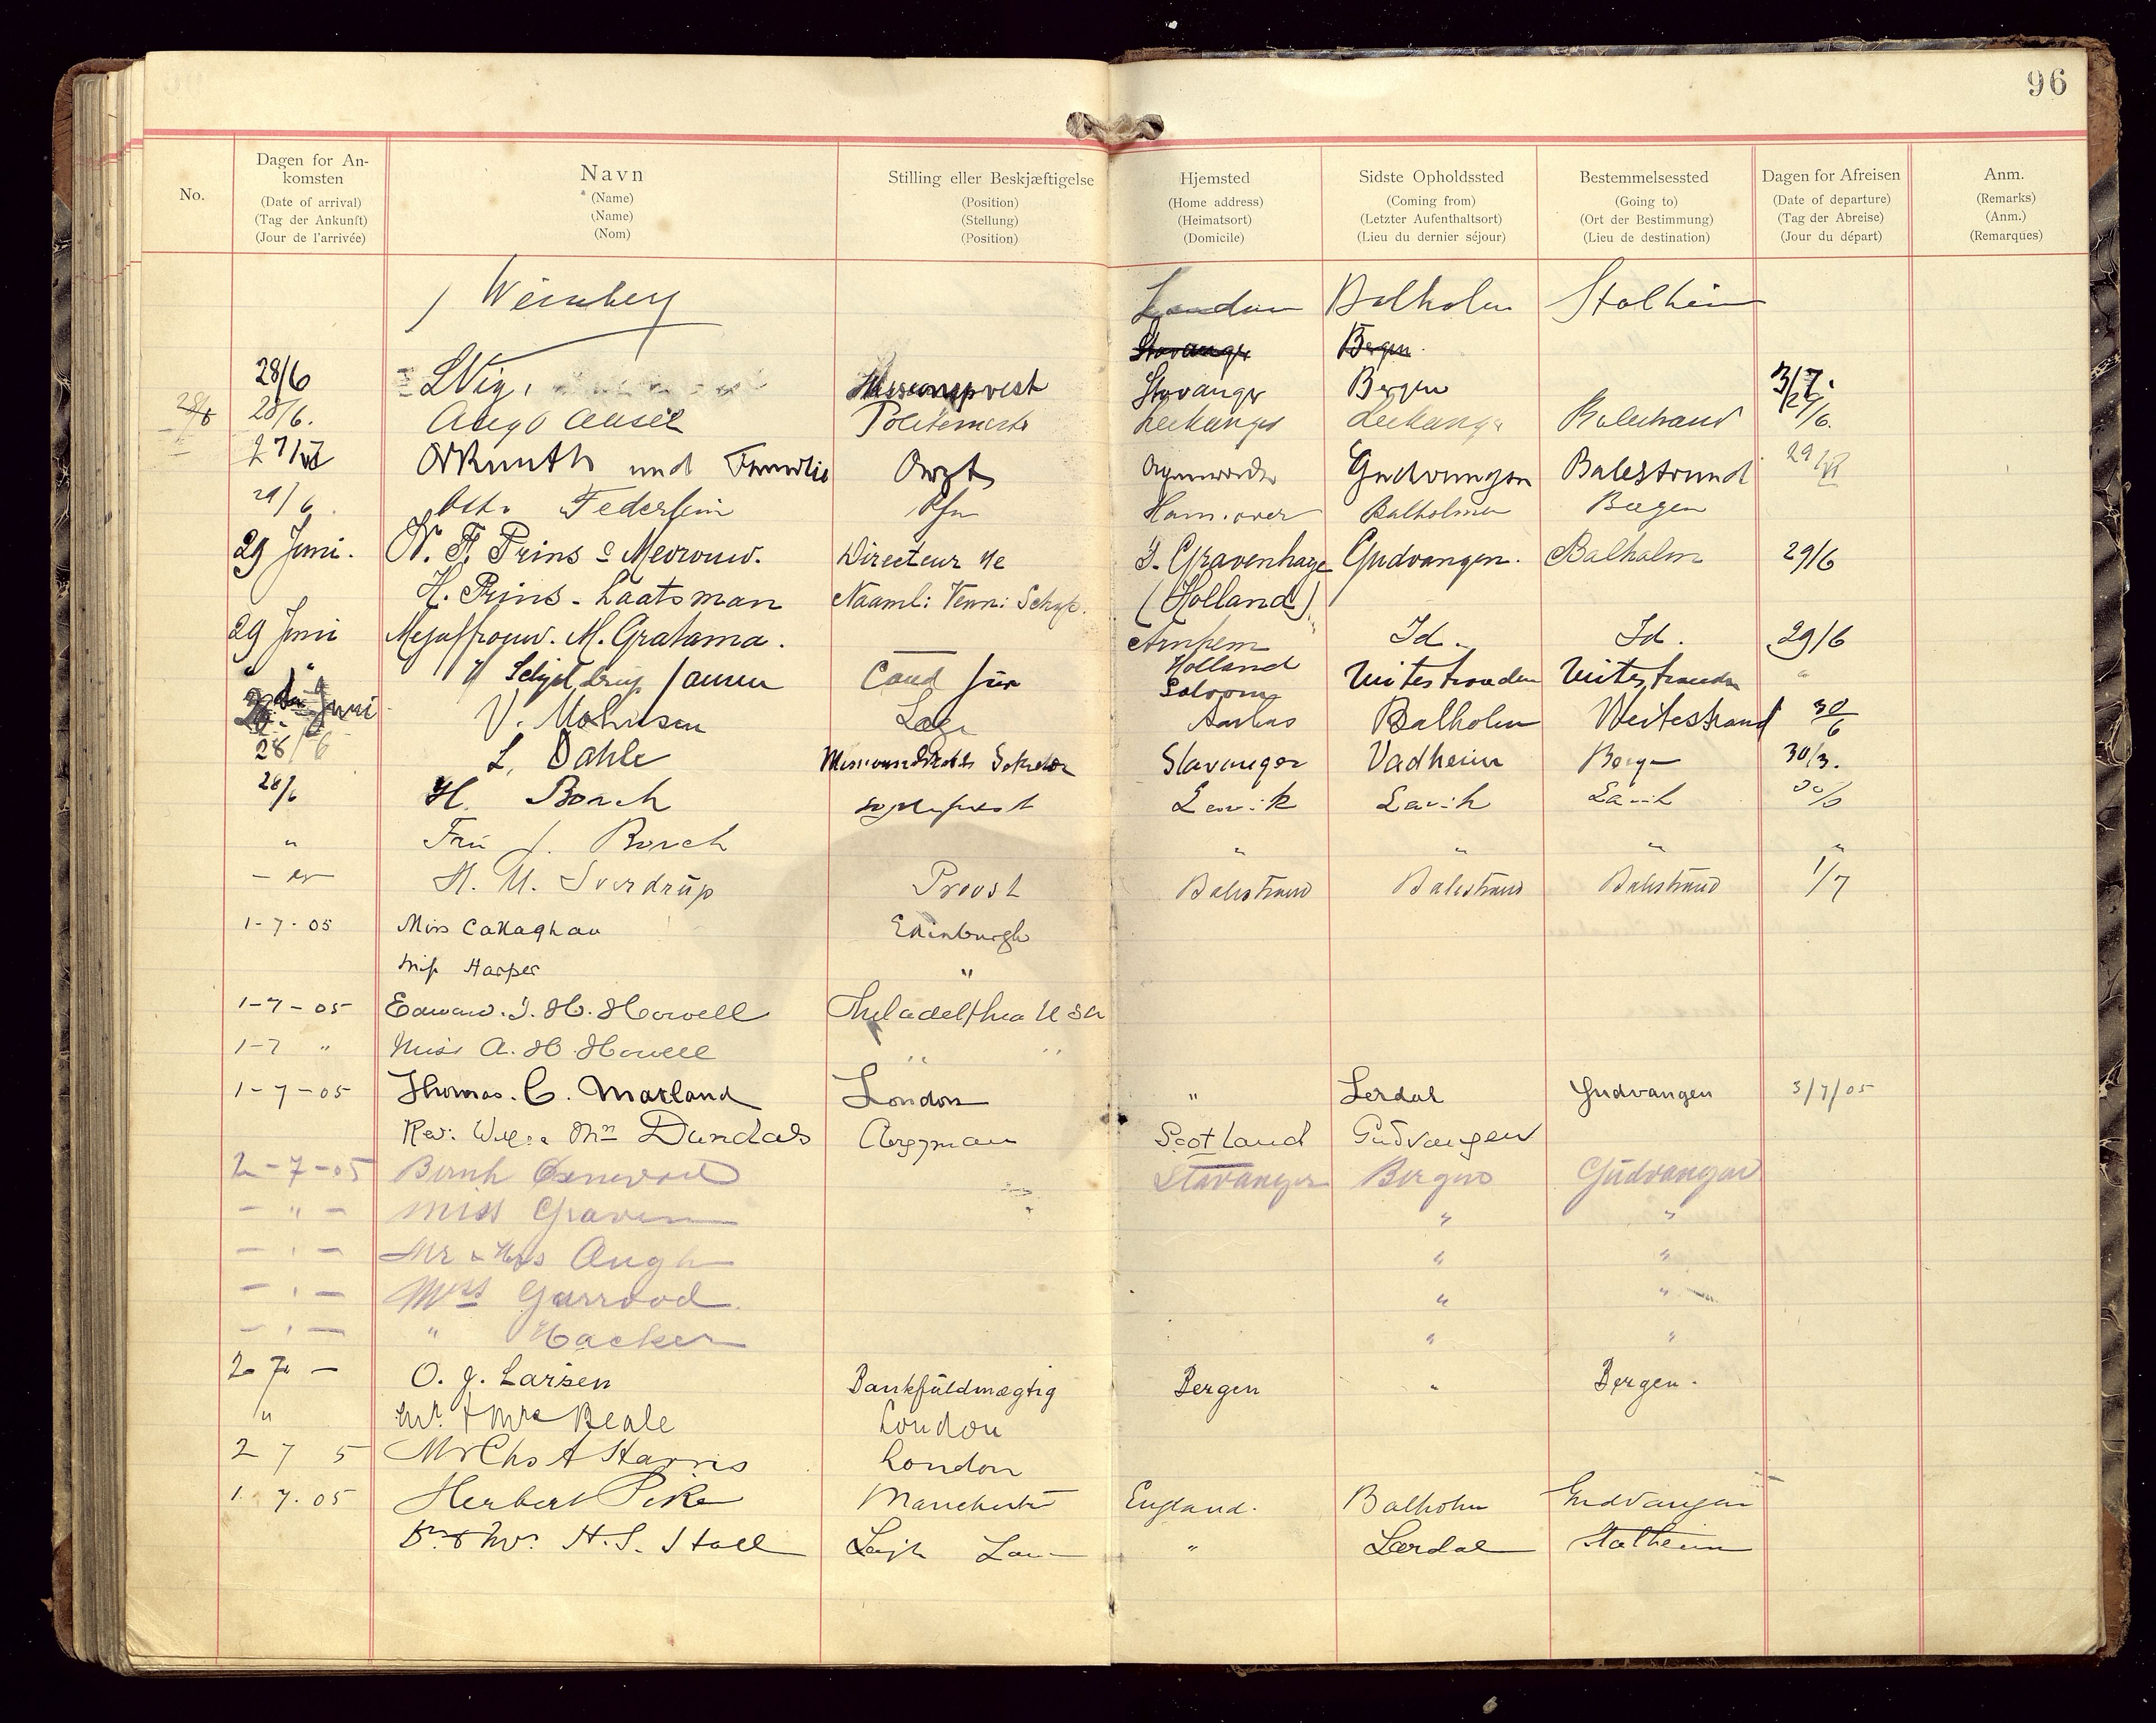 96
No.
Dagen for An-
komsten
(Date of arrival)
(Tag der Ankunft)
(Jour de l'arrivée)
Navn
(Name)
(Name)
(Nom)
Stilling eller Beskjæftigelse
(Position)
(Stellung)
(Position)
Hjemsted
(Home address)
(Heimatsort)
(Domicile)
Sidste Opholdssted
(Coming from)
(Letzter Aufenthaltsort)
(Lieu du dernier séjour)
Bestemmelsessted
(Going to)
(Ort der Bestimmung)
(Lieu de destination)
Dagen for Afreisen
(Date of departure)
(Tag der Abreise)
(Jour du départ)
Anm.
(Remarks)
(Anm.)
(Remarques)
Weinberg London Balholm Stalheim
Stavanger Bergen
28/6 Missionsprest Stavanger Bergen 3/7.
28/6 28/6. Leikanger Leikanger Balestrand 29/6.
27/VI und Familie Arzt Gudvangen Balestrand 29/VI
29/6. Hannover Balholmen Bergen
29 Juni. Prins & Mevrouw. Directeur de S. Gravenhage Gudvangen. Balholm 29/6
H. Prins-Laatsman Naaml: Venn: Schap. (Holland)
29 Juni Mejuffrouw. M. Gratama. Arnhem Id. Id. 29/6
" " Schjelderup Cand jur Holland
Juni V. Læge Aarhus Balholm Veitestrand 30/6
28/6 L. Dahle Stavanger Vadheim Bergen 30/3.
28/6 H. Borch Sogneprest Lavik Lavik Lavik 30/6
" Fru J. Borch " " " "
H. U. Sverdrup Provst Balestrand Balestrand Balestrand 1/7
1-7-05 Miss Callaghan Edinburgh
Miss Harper "
1-7-05 Edward. I. H. Howell Philadelphia USA
1-7 " Miss A. H. Howell " "
1-7-05 Thomas. C. Marland London " Lerdal Gudvangen 3/7/05
Rev: Dundas Clergyman Scotland Gudvangen
2-7-05 Bernh Stavanger Bergen Gudvangen
- " - Miss Graven " "
- " - Mr & Mrs " "
- " - Garrood " "
- " - " Hacker " "
2-7- O. J. Larsen Bankfuldmægtig Bergen " Bergen.
" Mr. & Mrs Beale London
2 7 5 Mr Chs A Harris London
1.7.05 Herbert Pike Manchester England. Balholm Gudvangen
H. S. Stall Leigh " Lærdal Stalheim